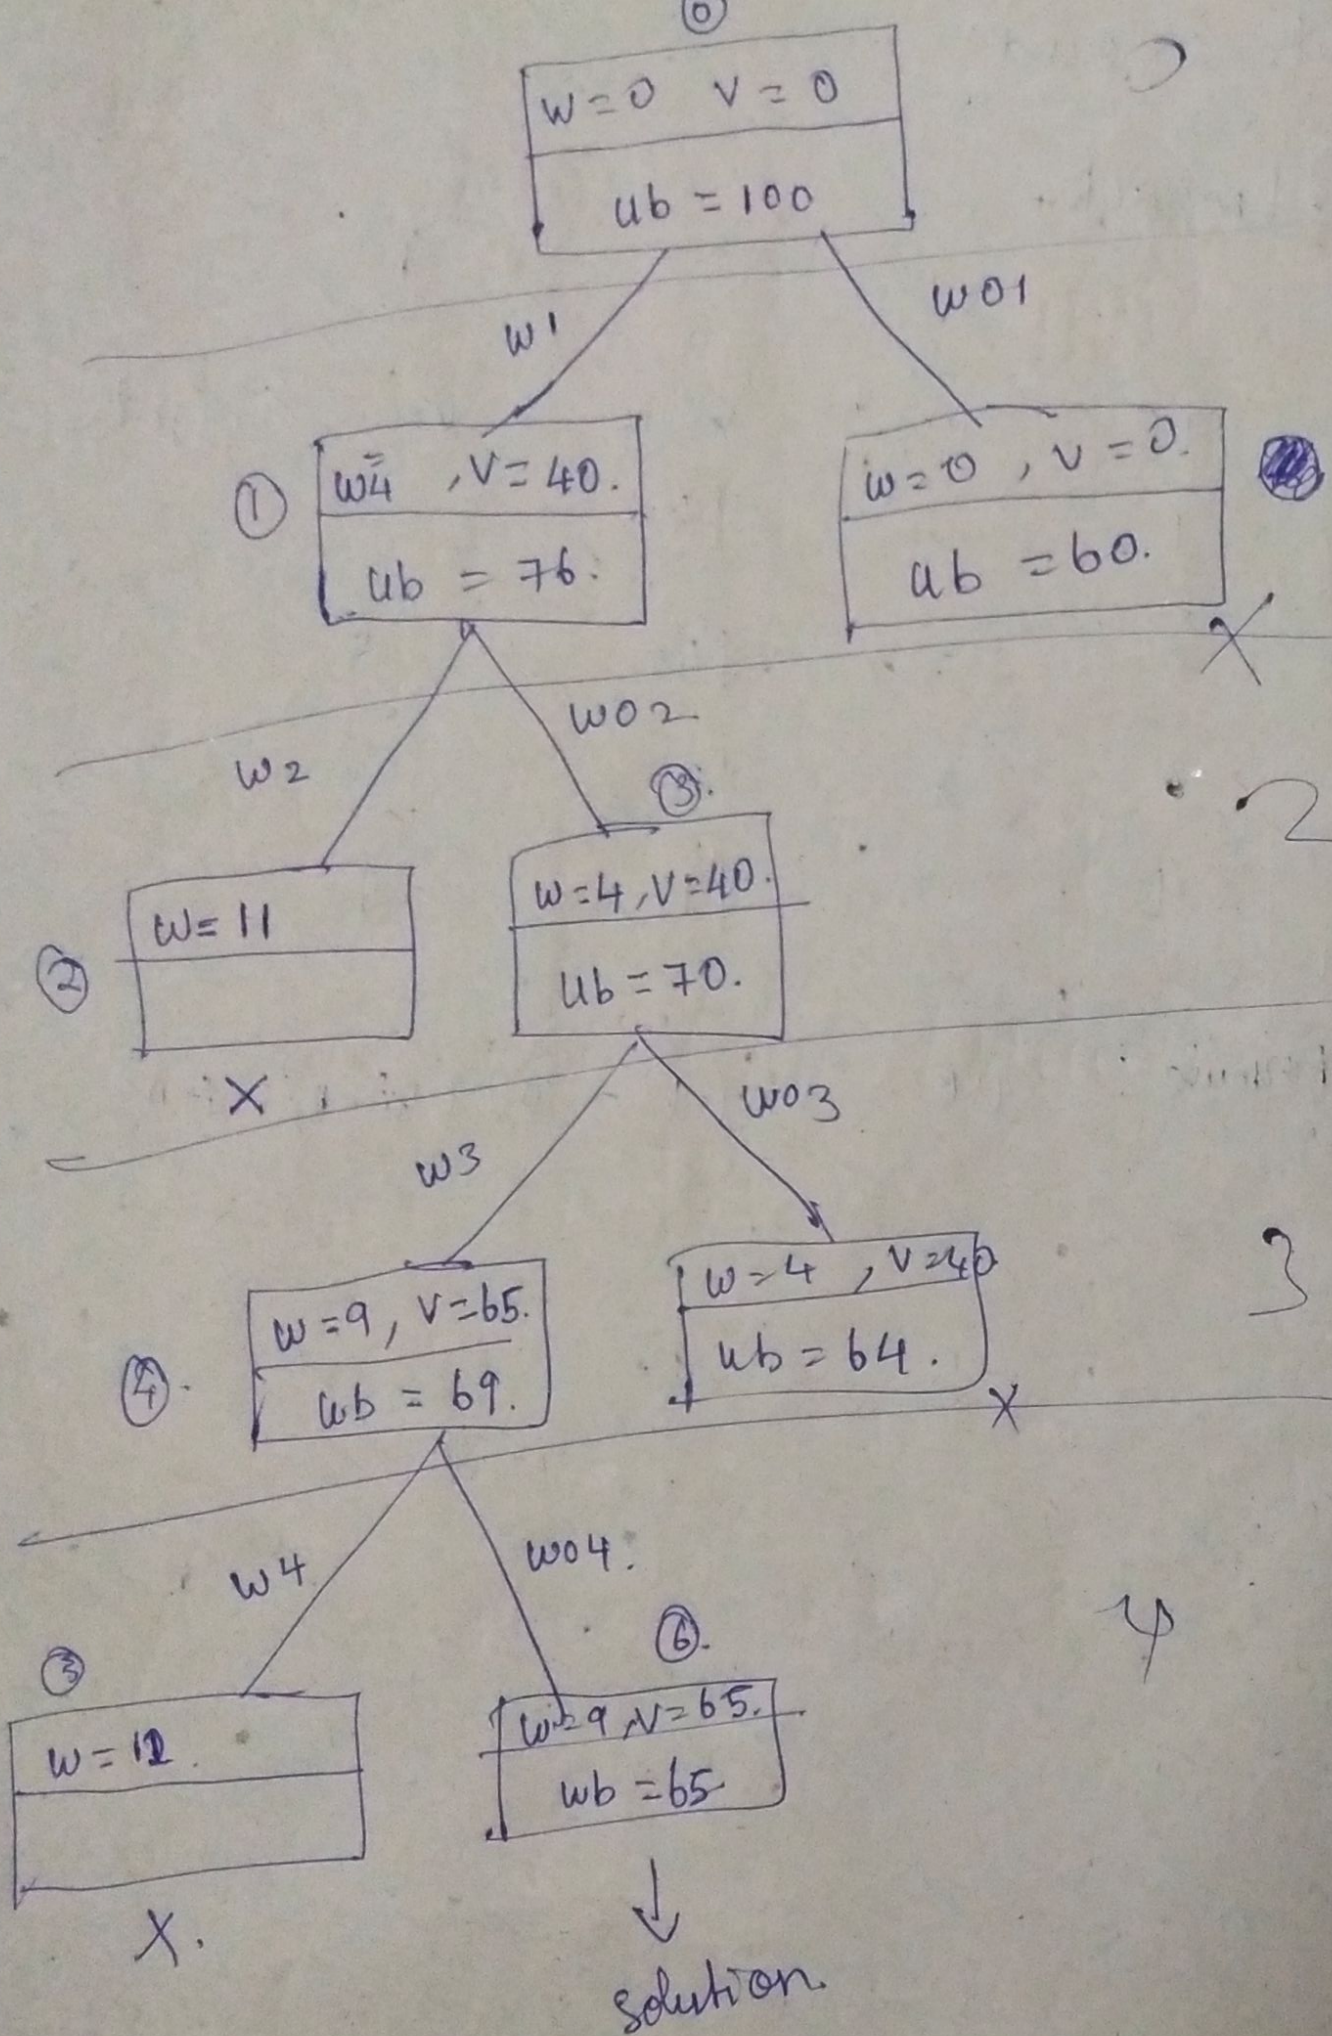 0
w=0 v=0
ub=100
w1
wo1
1
w=4, v=40.
ub=76.
w=0, v=0.
ub=60.
X
w2
wo2
3.
2
w=11
w=4, v=40.
2
ub=70.
X
w3
wo3
4.
w=9, v=65.
ub=69.
w=4, v=40
ub=64.
X
3
w4
wo4.
3
6.
4
w=12.
w=9, v=65.
ub=65
X.
↓
solution.